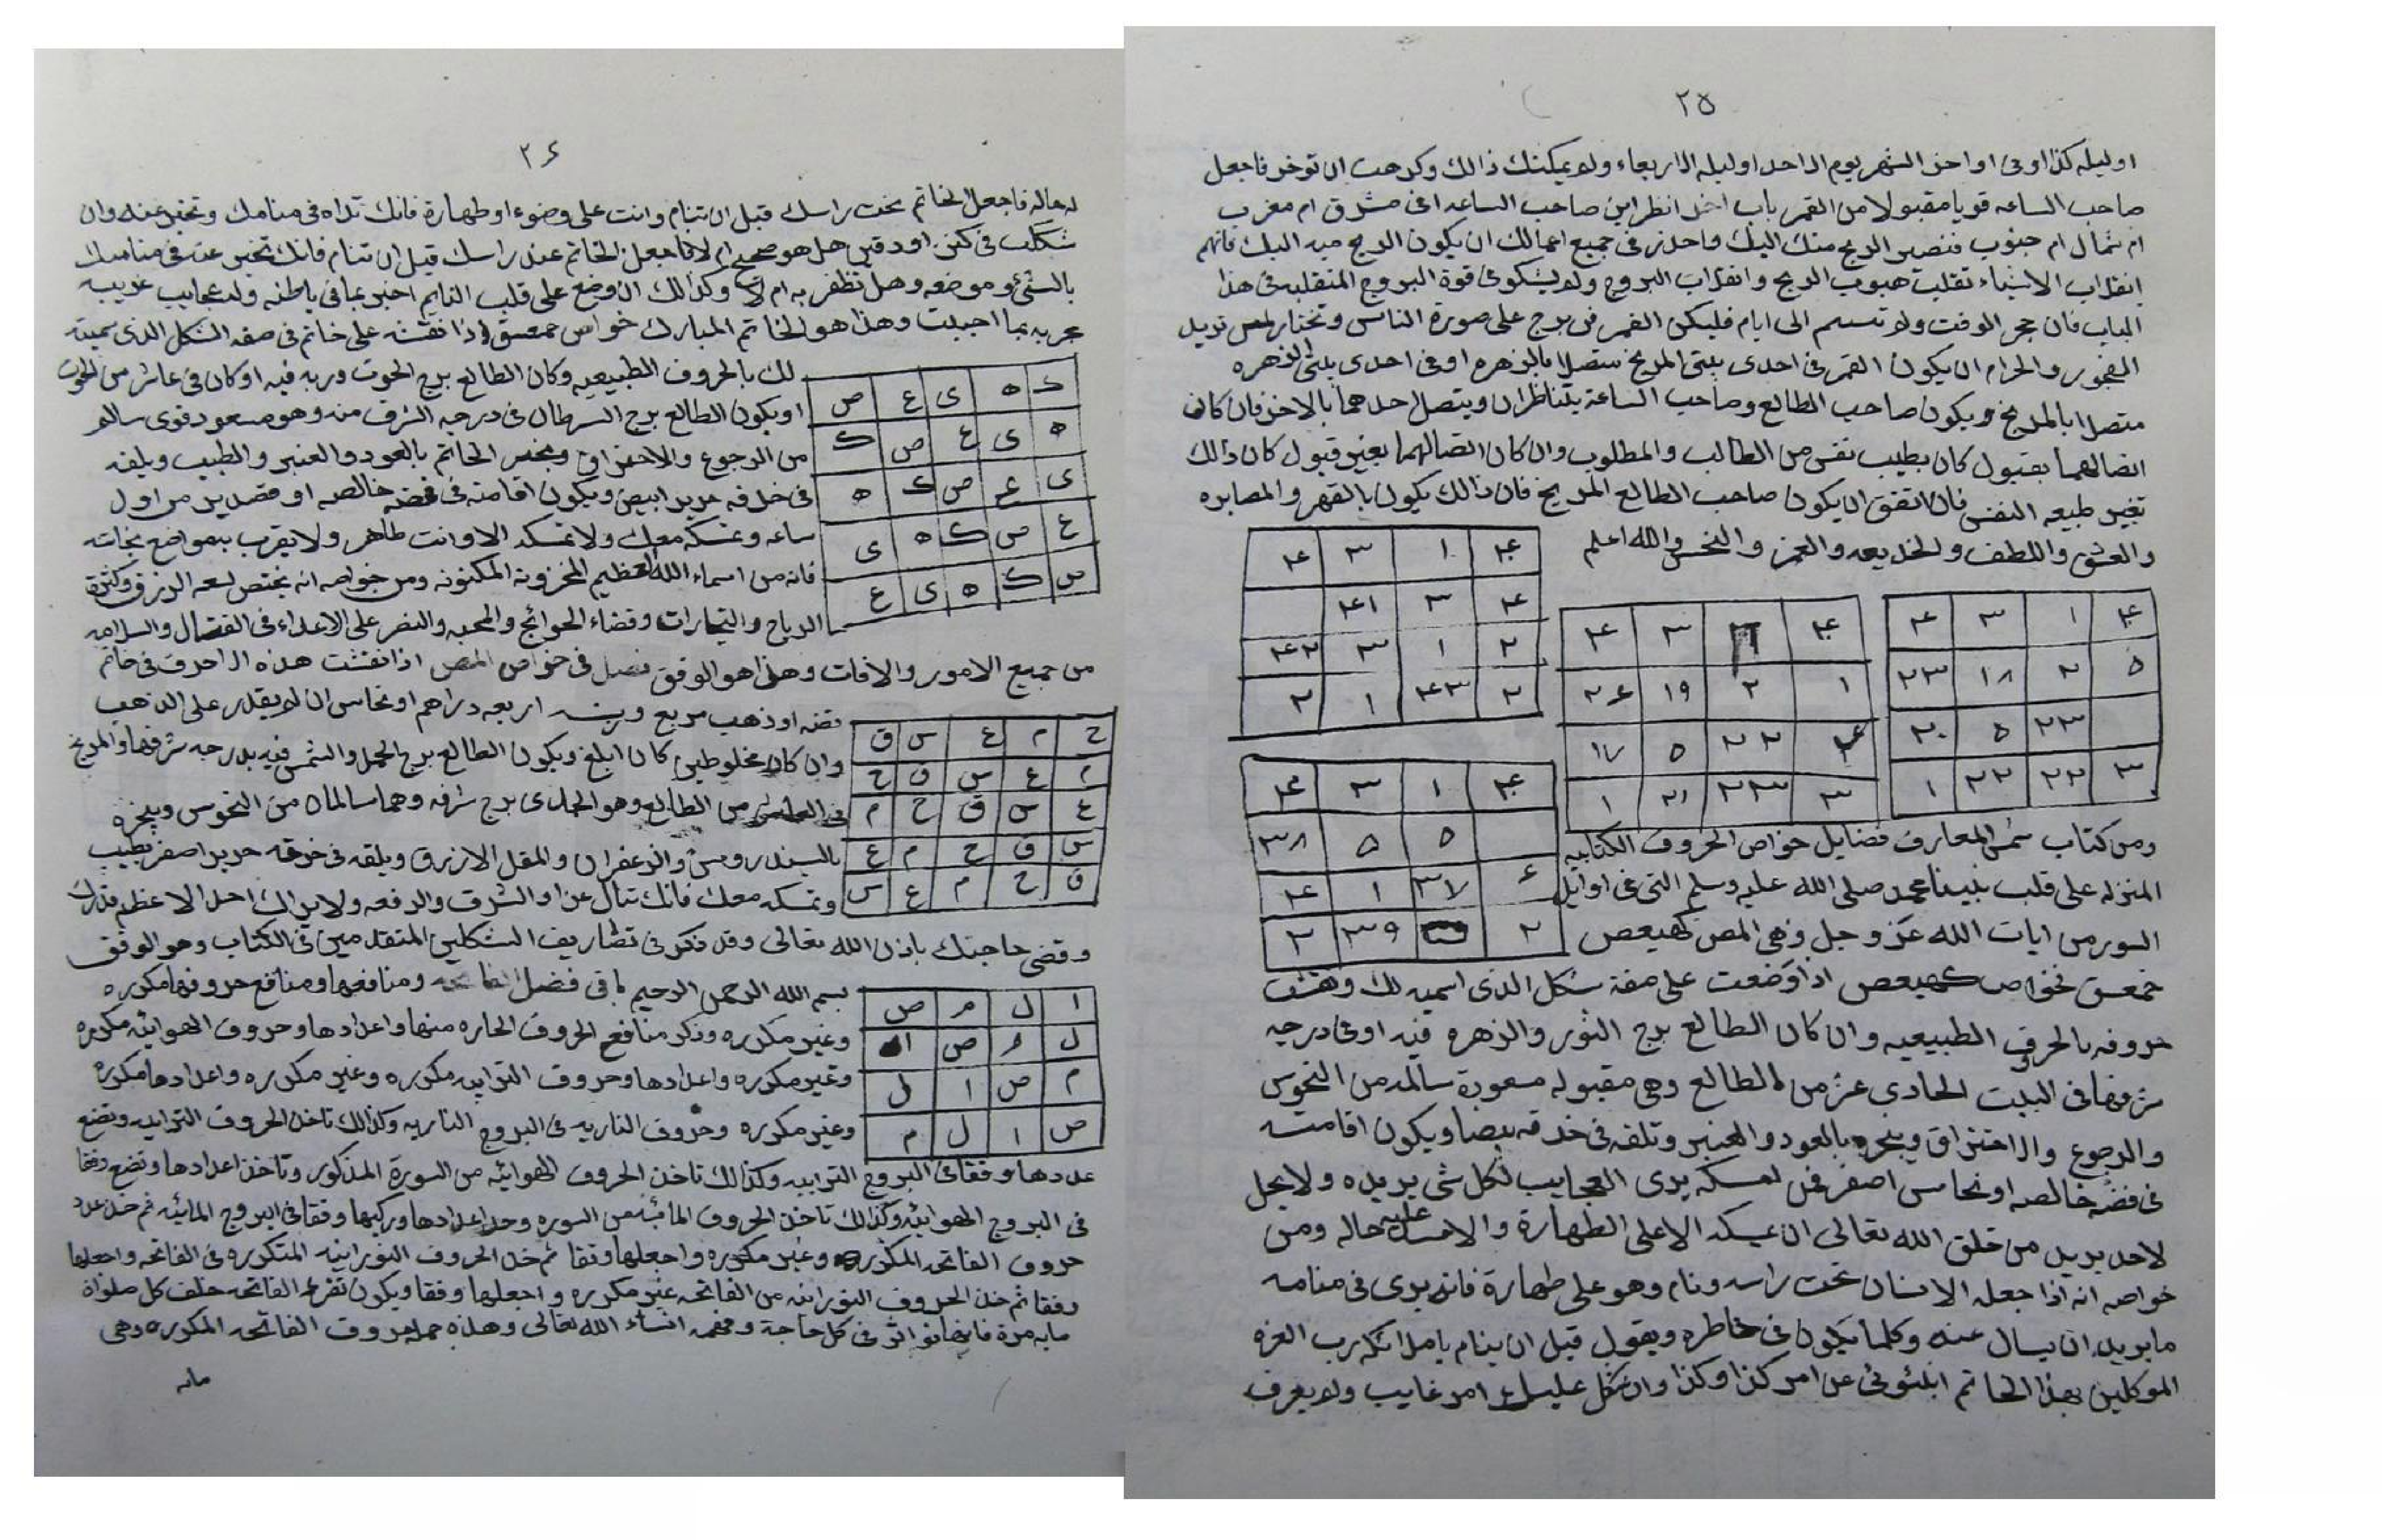 ٢٥
اوليله كذا اوفى اواخر الشهر يوم الاحد اوليله الاربعاء ولم يمكنك ذالك وكرهت ان توخر فاجعل
صاحب الساعه قويا مقبولا من القمر باب اخر انظر اين صاحب الساعه افى مشرق ام مغرب
ام شمال ام جنوب فتصير الريح منك اليك واحذر فى جميع اعمالك ان يكون الريح منه اليك فانهم
انقلاب الاشياء تقليب هبوب الريح وانقلاب البروج ولم يشكو فى قوة البروج المنقلبه فى هذا
الباب فان حجر الوقت ولم تسم الى ايام فليكن القمر فى برج على صورة الناس وتختار لمن تريد
الفجور والحرام ان يكون القمر فى احدى بيتى المريخ متصلا بالزهره اوفى احدى بيتى الزهره
متصلا بالمريخ ويكون صاحب الطالع وصاحب الساعة يتناظران ويتصل احدهما بالاخر فان كان
اتصالهما بقبول كان بطيب نفس من الطالب والمطلوب وان كان اتصالهما بغير قبول كان ذالك
بغير طبيعه النفس فان اتفق ان يكون صاحب الطالع المريخ فان ذالك يكون بالقهر والمصابره
والعشق واللطف والخديعه والغمز والنحس والله اعلم
ومن كتاب شمس المعارف فضايل خواص الحروف الكتابيه
المنزله على قلب نبينا محمد صلى الله عليه وسلم التى فى اوايل
السور من ايات الله عز وجل وهى المص كهيعص
حمعسق فخواص كهيعص اذا وضعت على صفة شكل الذى اسميه لك ونقشت
حروفه بالحروف الطبيعيه وان كان الطالع برج الثور والزهره فيه اوفى درجه
شرفها فى البيت الحادى عشر من الطالع وهى مقبوله مسعودة سالمه من النحوس
والرجوع والاحتراق ويبخره بالعود والعنبر وتلفه فى خرقه بيضا ويكون اقامته
فى فضه خالصه او نحاس اصفر فمن امسكه يرى العجايب لكل شى يريده ولا يحل
لاحد يريد من خلق الله تعالى ان يمسكه الا على الطهارة والا عليه حاله ومن
خواصه انه اذا جعله الانسان تحت راسه ونام وهو على طهارة فانه يرى فى منامه
ما يريد ان يسال عنه وكلما يكون فى خاطره ويقول قبل ان ينام يا ملائكه رب العزه
الموكلين بهذا الخاتم انبئونى عن امر كذا وكذا وان شكل عليك امر غايب ولم يعرف
٢٦
له حاله فاجعل الخاتم تحت راسك قبل ان تنام وانت على وضوء او طهارة فانك تراه فى منامك وتخبر عنه وان
شككت فى كنز او دفين هل هو صحيح ام لا فاجعل الخاتم عند راسك قبل ان تنام فانك تخبر عنه فى منامك
بالشئ وموضعه وهل تظفر به ام لا وكذالك ان وضع على قلب النايم اخبر بما فى باطنه وله عجايب غريبه
مجربه بما اجيبت وهذا هو الخاتم المبارك خواص حمعسق اذا نقشته على خاتم فى صفه الشكل الذى سميته
لك بالحروف الطبيعيه وكان الطالع برج الحوت وربه فيه او كان فى عاشر من الحوت
ك ه ى ع ص
او يكون الطالع برج السرطان فى درجه الشرف منه وهو مسعود قوى سالم
ه ى ع ص ك
من الرجوع والاحتراق ويبخر الخاتم بالعود والعنبر والطيب ويلفه
فى خرقه حرير ابيض ويكون اقامته فى فضه خالصه او قصدير من اول
ى ع ص ك ه
ساعه وتمسكه معك ولا تمسكه الا وانت طاهر ولا يقرب بمواضع نجاسه
ع ص ك ه ى
فانه من اسماء الله العظيم المخزونه المكنونه ومن خواصه انه يختص لسعه الرزق وكثرة
ص ك ه ى ع
الارباح والتجارات وقضاء الحوائج والمحبه والنصر على الاعداء فى القتال والسلامه
من جميع الامور والافات وهذا هو الوفق فصل فى خواص المص اذا نقشت هذه الاحرف فى خاتم
فضه او ذهب مربع وزنه اربعه دراهم او نحاس ان لم يقدر على الذهب
ح م ع س ق
وان كان مخلوطين كان ابلغ ويكون الطالع برج الحمل والشمس فيه بدرجه شرفها والمريخ
م ع س ق ح
فى العاشر من الطالع وهو الجدى برج شرفه وهما سالمان من النحوس ويبخره
ع س ق ح م
بالسندروس والزعفران والمقل الازرق ويلفه فى خرقه حرير اصفر بطيب
س ق ح م ع
وتمسكه معك فانك تنال عزا والشرف والرفعه ولا يراك احد الا عظم قدرك
ق ح م ع س
وقضى حاجتك باذن الله تعالى وقد ذكر فى تصاريف الشكلين المتقدمين فى الكتاب وهو الوفق
بسم الله الرحمن الرحيم باقى فضل الفاتحه ومنافعها ومنافع حروفها مكرره
ا ل م ص
وغير مكرره وذكر منافع الحروف الحاره منها واعدادها وحروف الهوايه مكرره
ل م ص ا
وغير مكرره واعدادها وحروف الترابيه مكرره وغير مكرره واعدادها مكرره
م ص ا ل
وغير مكرره وحروف الناريه فى البروج الناريه وكذالك تاخذ الحروف الترابيه وتضع
ص ا ل م
عددها وفقا فى البروج الترابيه وكذالك تاخذ الحروف الهوائيه من السورة المذكور وتاخذ اعدادها وتضع وفقا
فى البروج الهوائيه وكذالك تاخذ الحروف المائيه من السوره وخذ اعدادها وركبها وفقا فى البروج المائيه ثم خذ عدد
حروف الفاتحه المكرره وغير مكرره واجعلها وفقا ثم خذ الحروف النورانيه المتكرره فى الفاتحه واجعلها
وفقا ثم خذ الحروف النورانيه من الفاتحه غير مكرره واجعلها وفقا ويكون تقرء الفاتحه خلف كل صلواة
مايه مرة فانها تواثر فى كل حاجة ومهمه انشاء الله تعالى وهذه جمله حروف الفاتحه المكرره وهى
مايه